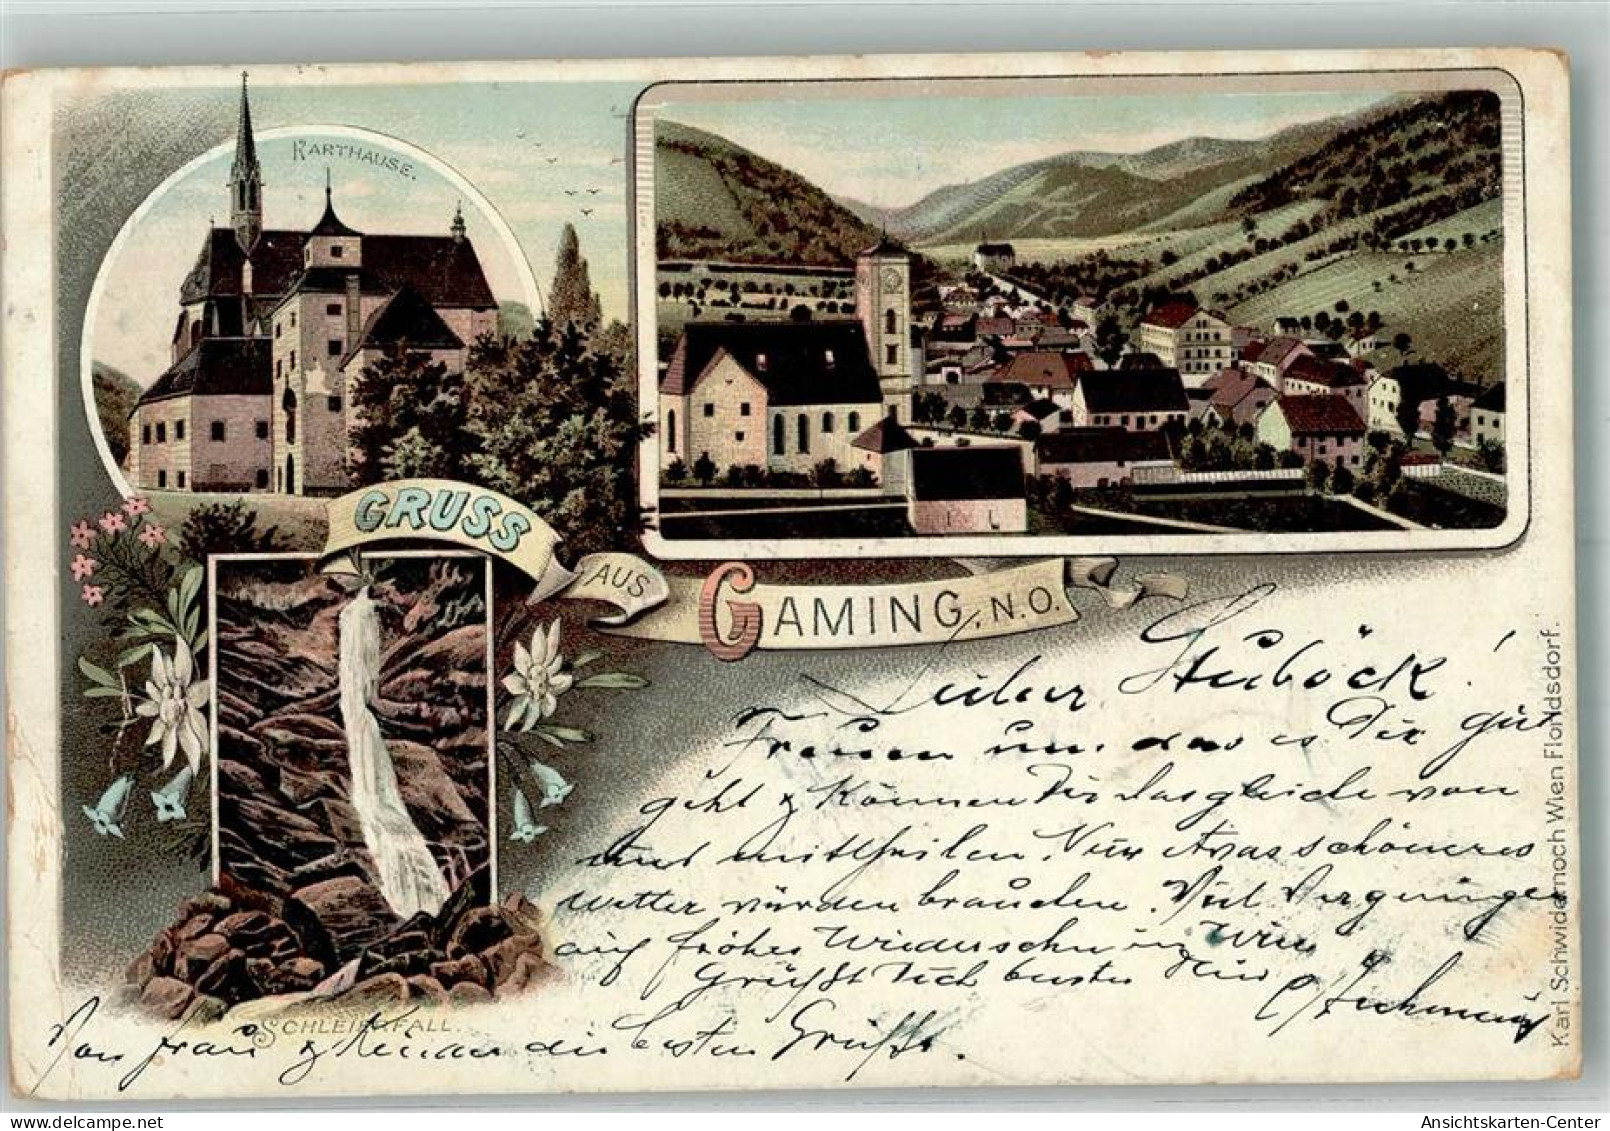 KARTHAUSE.
GRUSS
AUS
GAMING, N.O.
Lieber Steüböck!
Freuen uns das es Dir güt
geht & können Dir dasgleiche von
uns mittheilen. Nur etwas schöneres
Wetter würden brauchen. Viel Vergnügen
auf frohes Wiedersehn in Wien
Grüßt Dich bestens Dein
Von Frau & Kinder die besten Grüße.
SCHLEIERFALL.
Karl Schwidernoch Wien Floridsdorf.
Ansichtskarten-Center